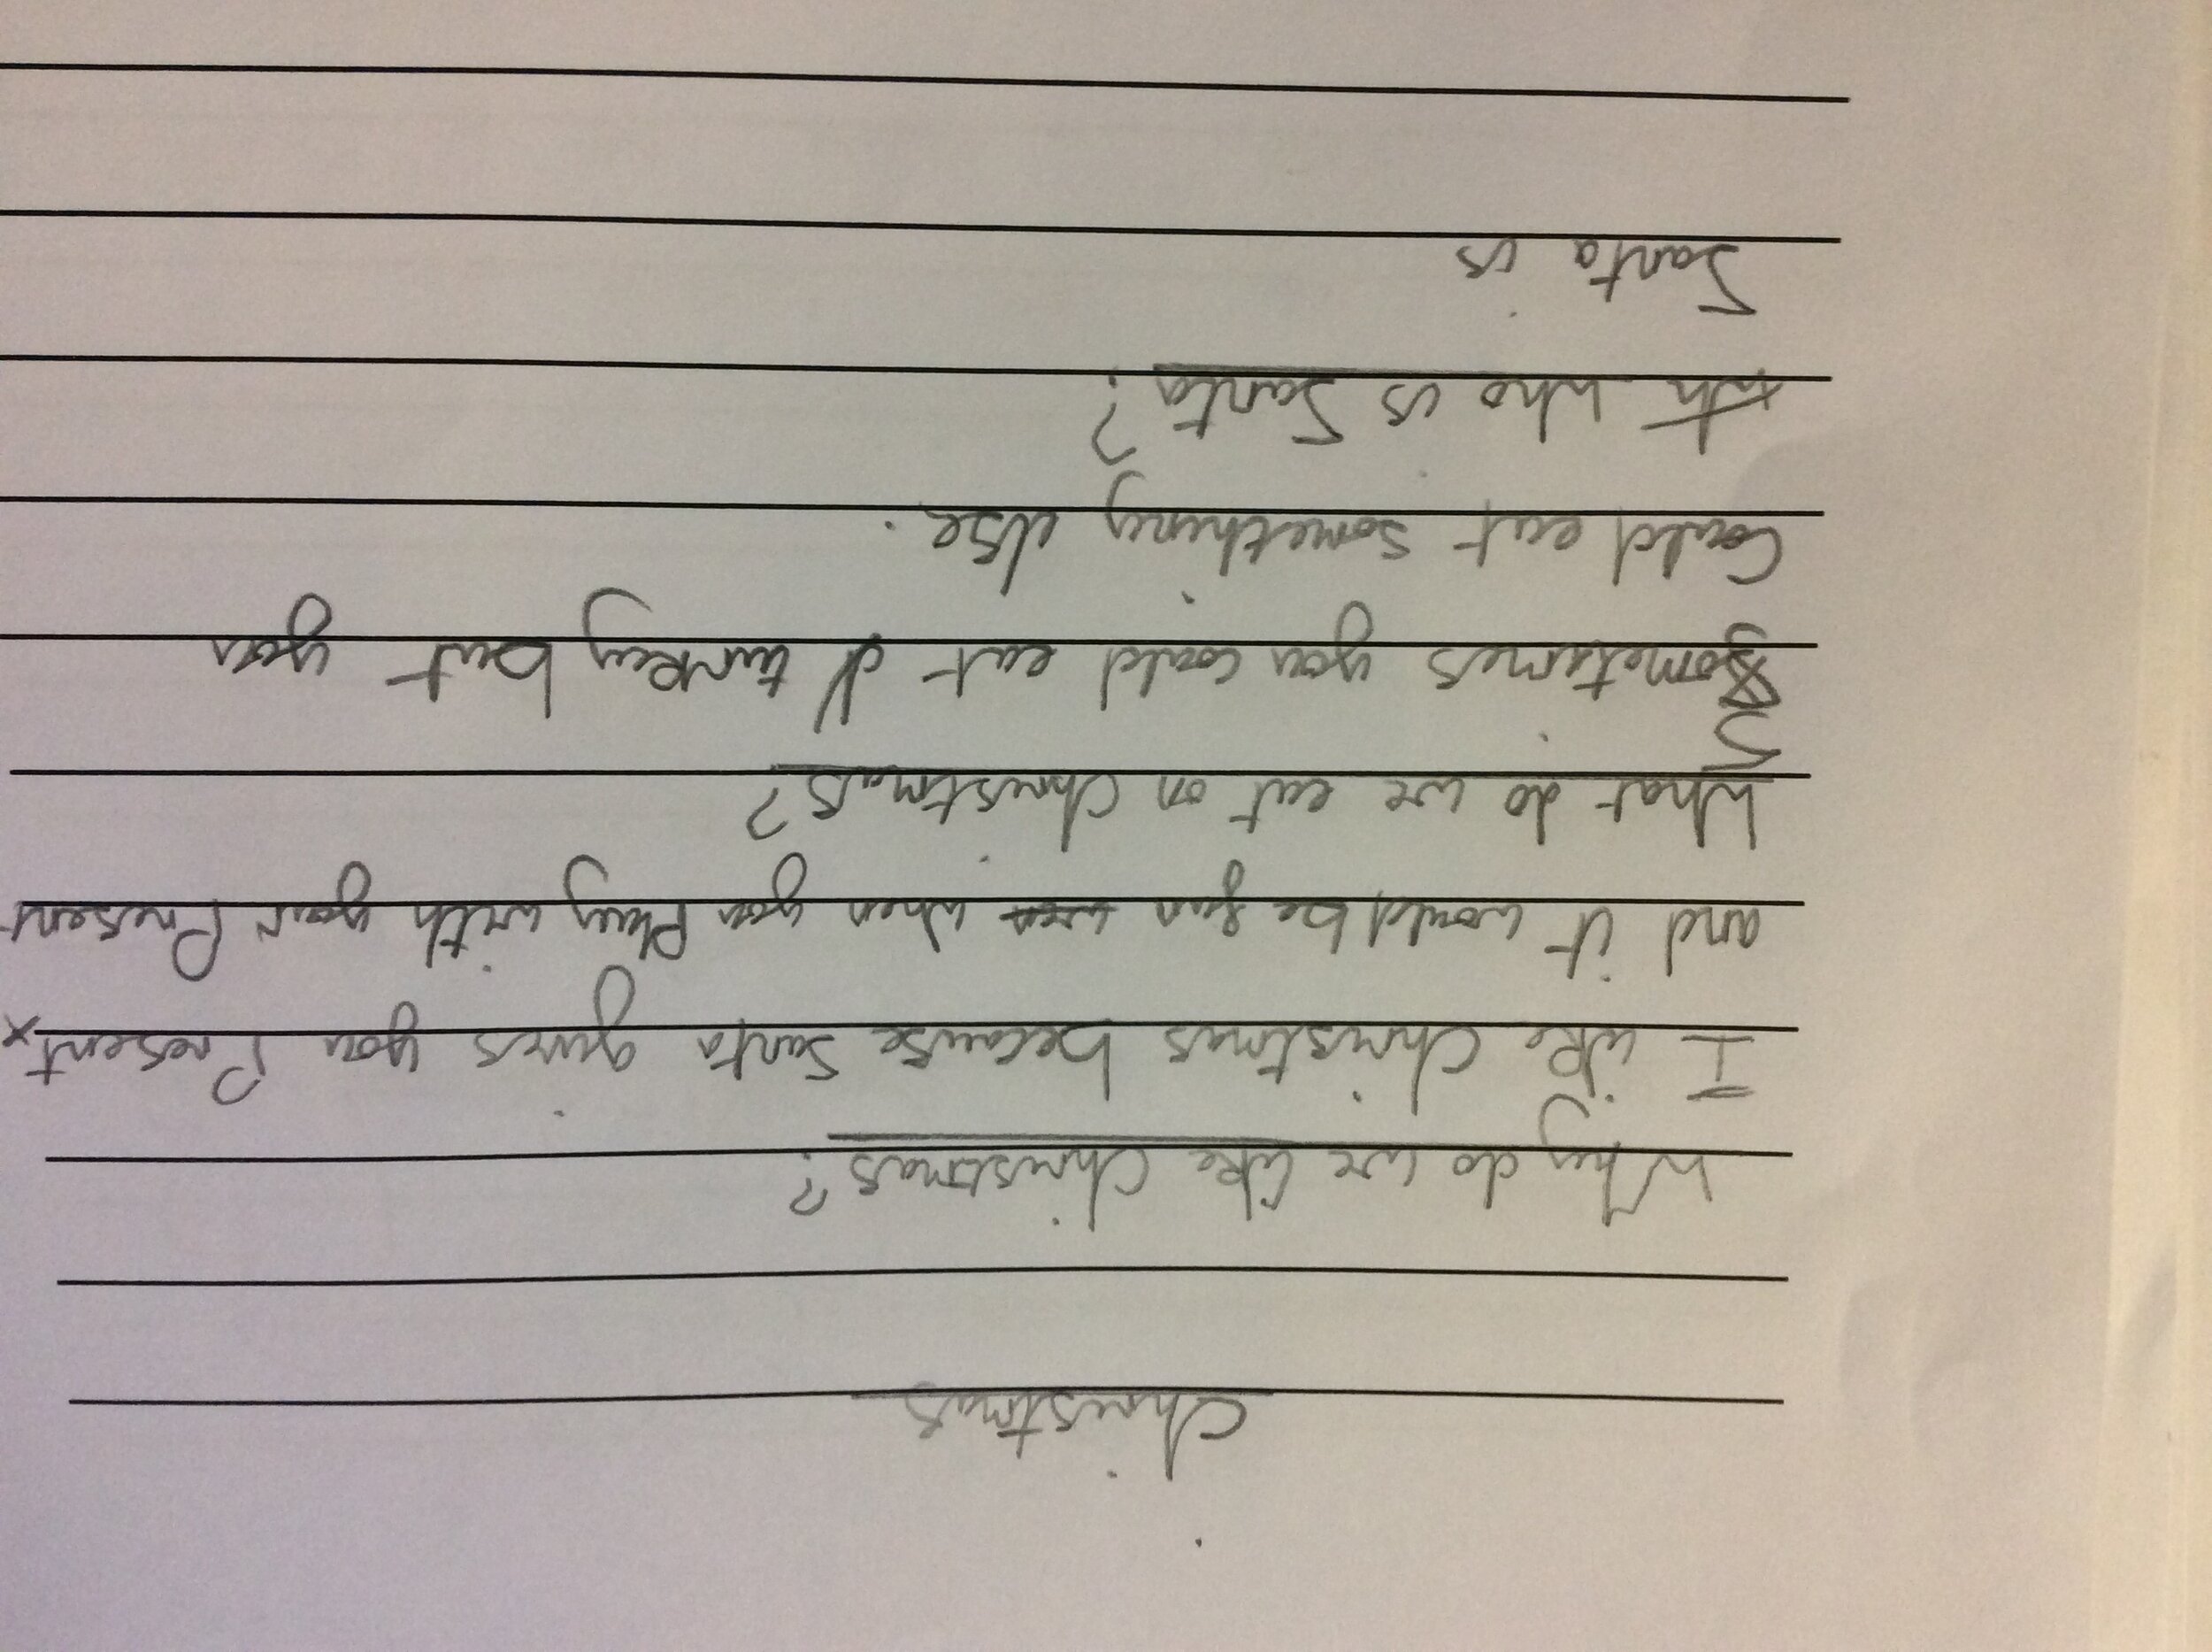 Christmas
Why do we like Christmas?
I like Christmas because Santa gives you Present
and it would be fun when you Play with your Present
What do we eat on Christmas?
Sometimes you could eat turkey but you
Could eat something else.
who is Santa?
Santa is